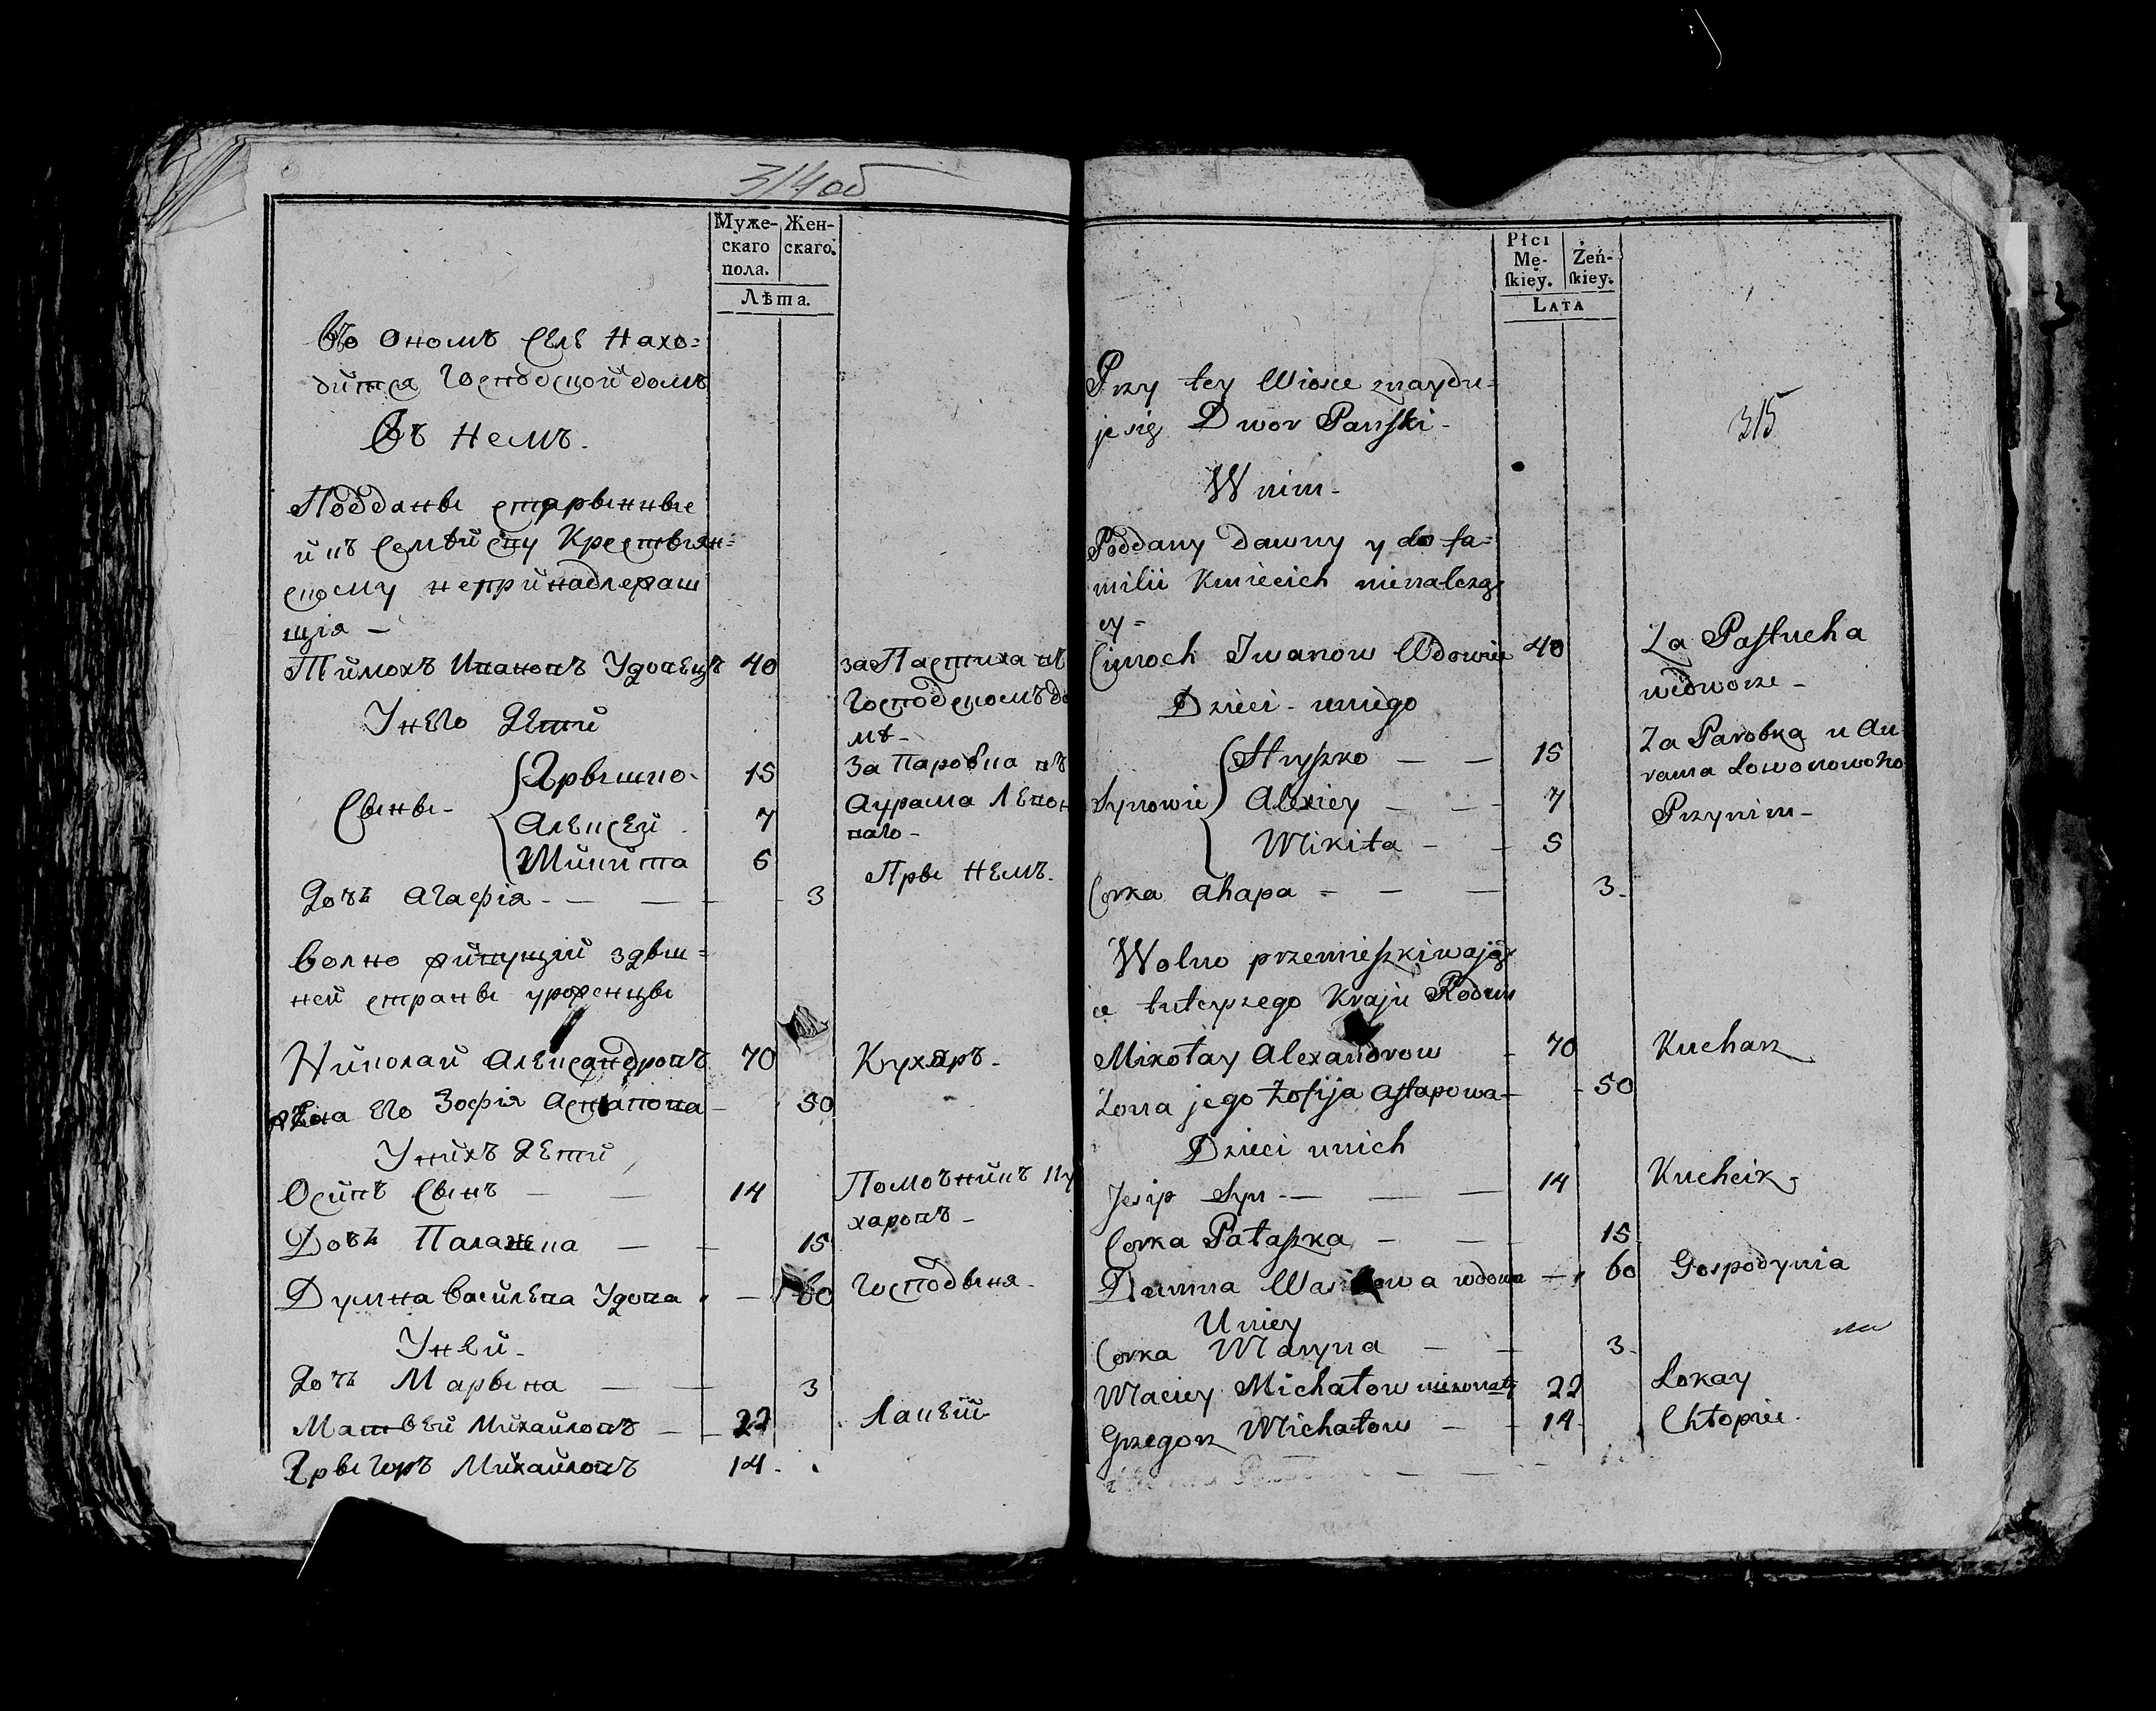 314 об
Муже-
скаго
пола.
Жен-
скаго.
Лѣта.
Во ономъ селѣ нахо=
дитса Господской домъ
Въ немъ.
Подданы старынные
и къ семѣйству Крестьян=
скому непринадлежащ
щія —
Тимохъ Ивановъ Удовецъ 40 за Пастуха въ
Господскомъ до
мѣ —
У него дети
Грышко 15 За Паробка въ
Сыны — Алексей 7 Аурама Лево
наго —
Микита 5 При немъ.
Дочь Агафія — — — 3
Волно живущіи здѣш=
ней страны уроженцы
Николай Александровъ 70 Кухаръ —
жена его Зофія Астапова — 50
У нихъ дети
Осипъ сынъ — — 14 Помочникъ Ку
харовъ —
Дочь Палажка — — 15
Думна Василева Удова — 60 Господыня —
У ней —
Дочь Марына — — 3
Матвей Михайловъ — — 22 Лакей
Грыгоръ Михайловъ 14.
Płci
Mę-
skiey.
Żeń-
skiey.
Lata
315
Przy tey Wiosce znaydu=
je się Dwor Pański —
W nim —
Poddany dawny y do fa=
milii Kmiecich nienależą
cy =
Cimoch Iwanow Wdowiec 40 Za Pastucha
wedworze —
Dzieci uniego
Hryszko — — 15 Za Parobka u Au
rama Lowonowoho
Synowie Alexiey — — 7 Przynim —
Mikita — — 5
Corka Ahapa — — — 3 —
Wolno przemieszkiwają
ce tuteyszego Kraju Rodem
Mikołay Alexandrow — 70 Kucharz
Zona jego Zofija Astapowa — 50
Dzieci unich
Jesip Syn — — — 14 Kuchcik
Corka Pałaszka — — 15
Dumna Wasilewa wdowa — 60 Gospodynia
Uniey
Corka Maryna — — 3 —
Maciey Michałow nieżonaty 22 Lokay
Grzegorz Michałow — — 14 Chłopiec.